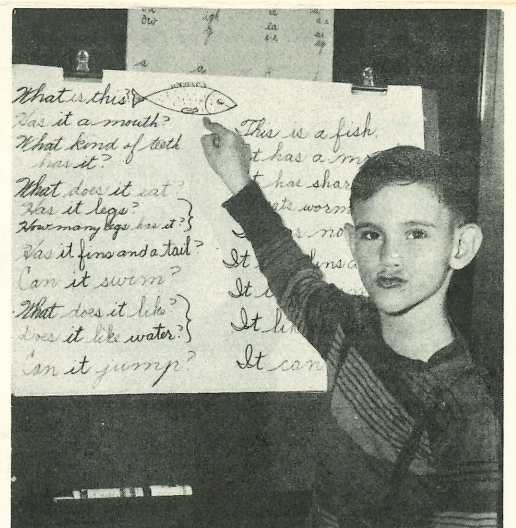 igh
What is this?
Has it a mouth?
What kind of teeth
has it?
What does it eat?
Has it legs?
How many legs has it?
Has it fins and a tail?
Can it swim?
What does it like?
Does it like water?
Can it jump?
This is a fish.
has a
has
It
It
It
It can